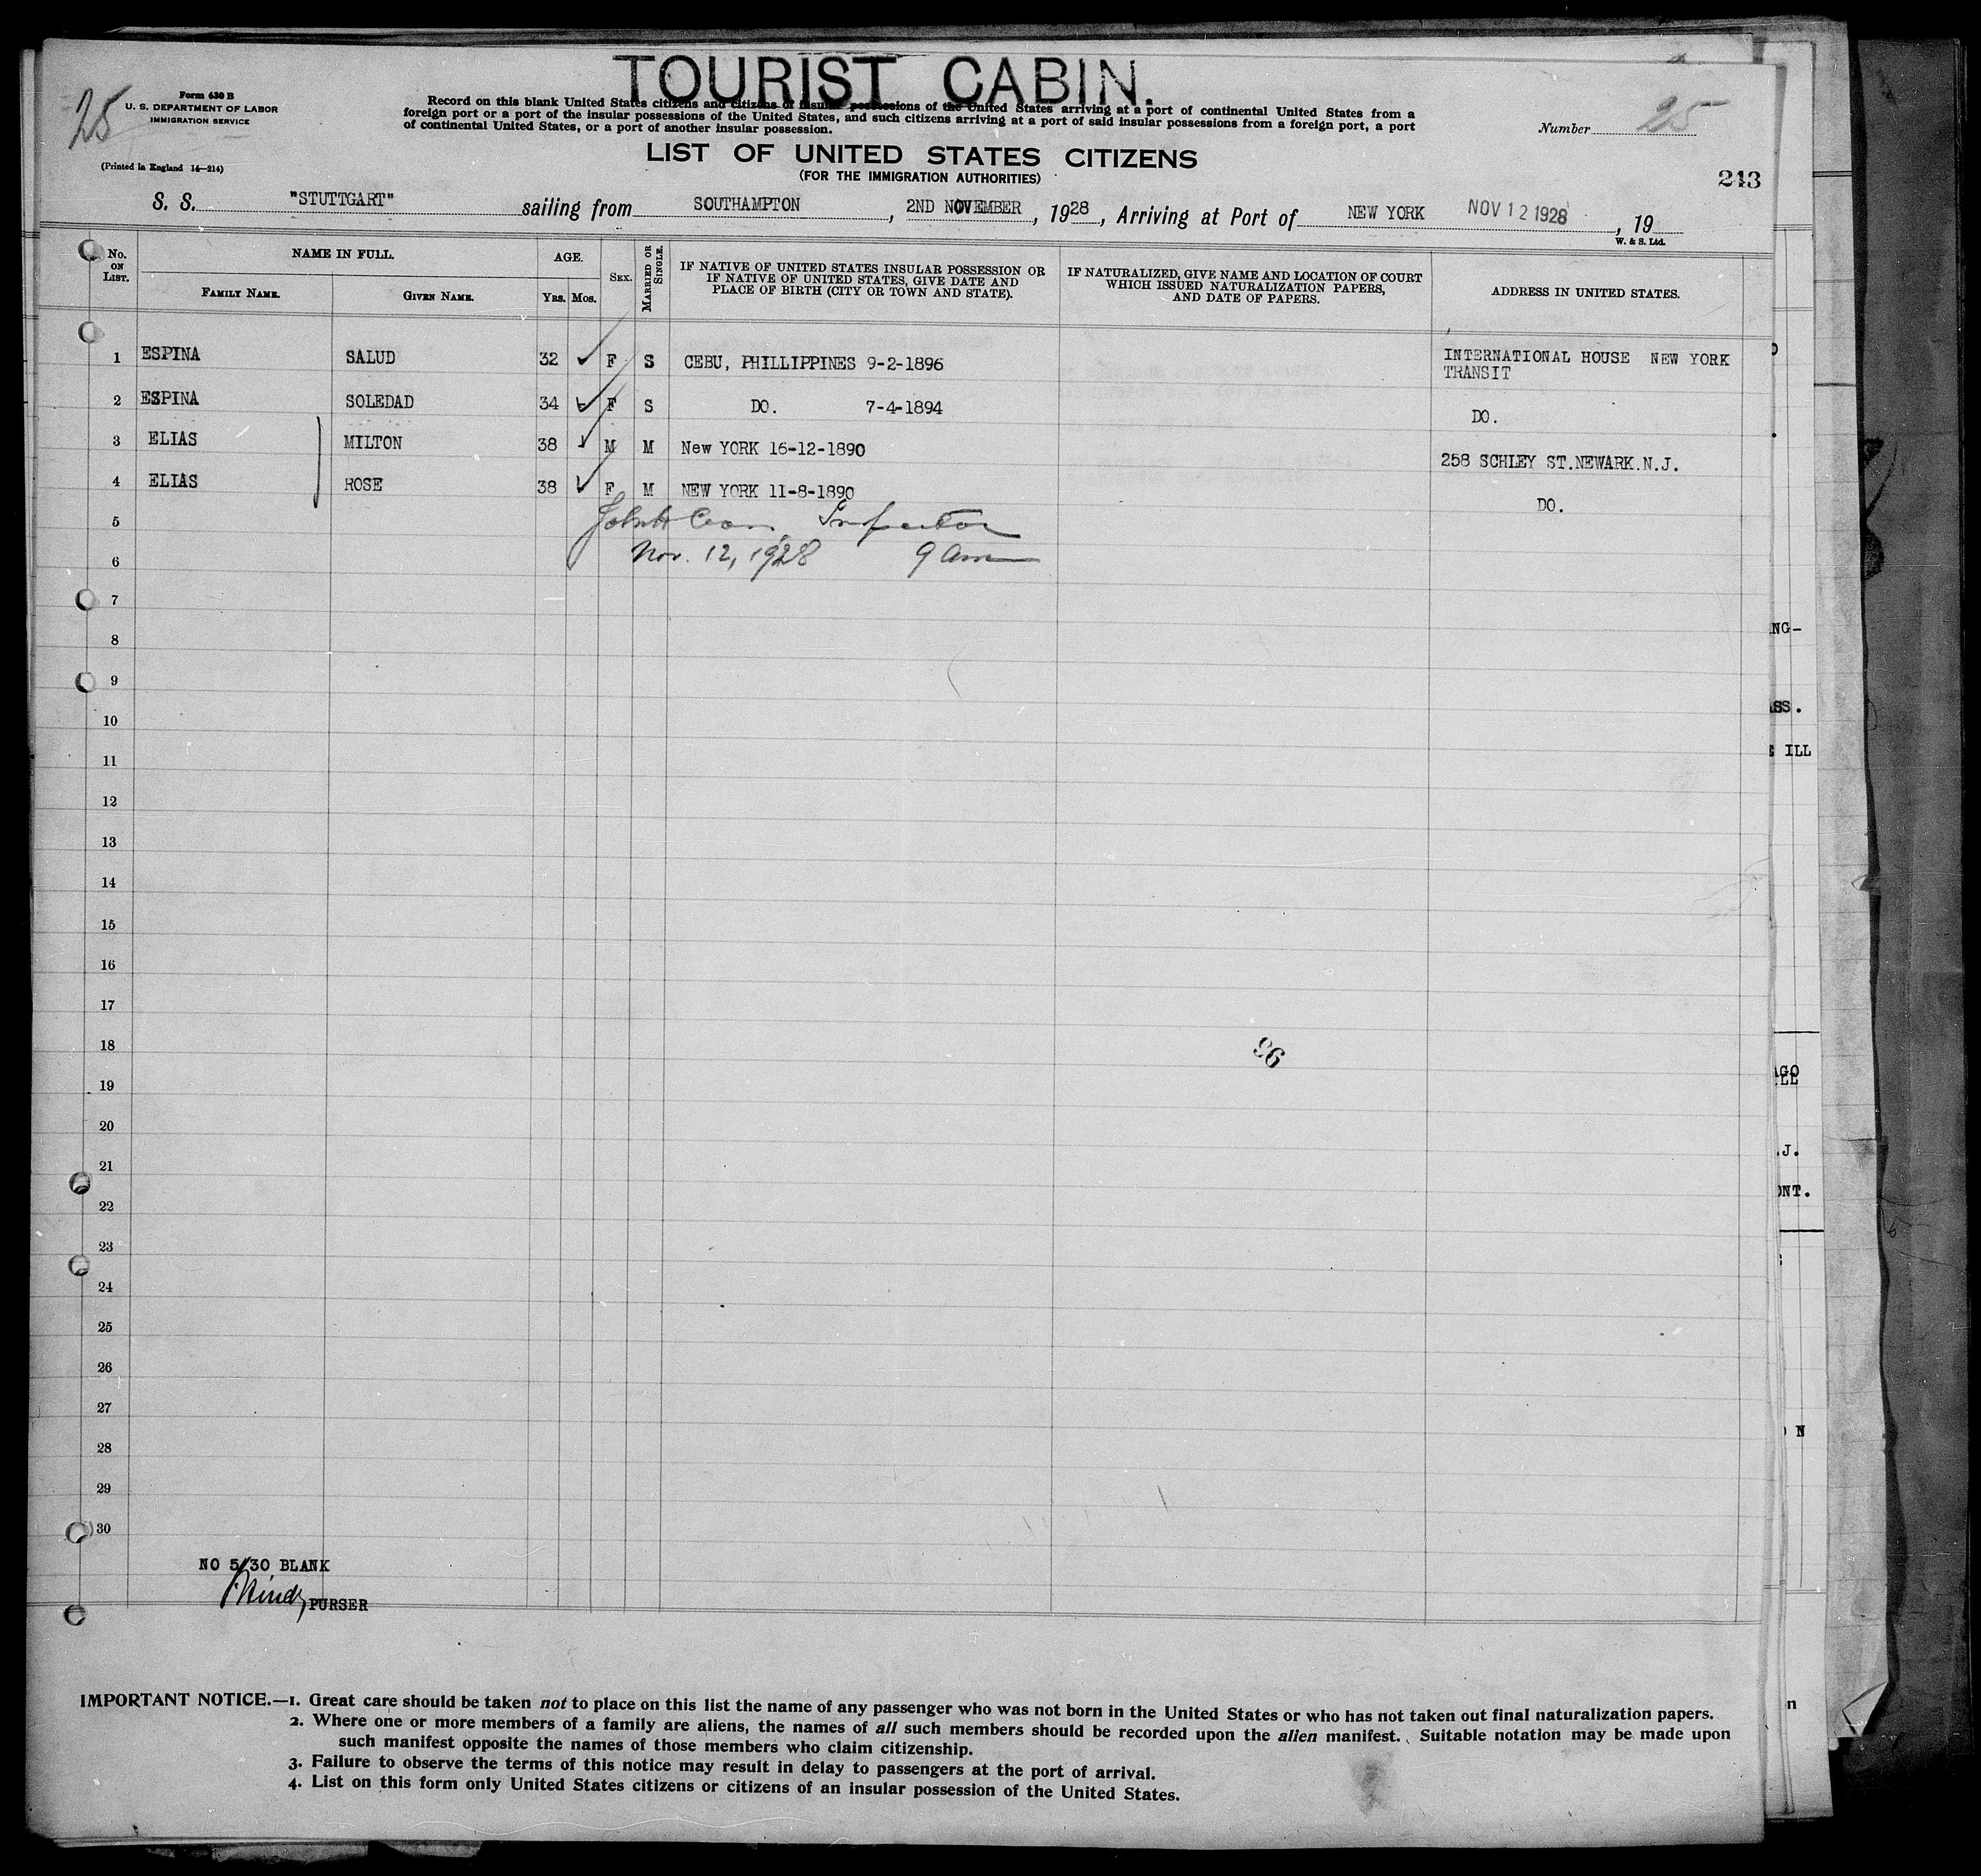 TOURIST CABIN.
25
Form 630 B
U. S. DEPARTMENT OF LABOR
IMMIGRATION SERVICE
(Printed in England 14—214)
Record on this blank United States citizens and citizens of insular possessions of the United States arriving at a port of continental United States from a
foreign port or a port of the insular possessions of the United States, and such citizens arriving at a port of said insular possessions from a foreign port, a port
of continental United States, or a port of another insular possession.
Number 25
LIST OF UNITED STATES CITIZENS
(FOR THE IMMIGRATION AUTHORITIES)
243
S. S. "STUTTGART" sailing from SOUTHAMPTON, 2ND NOVEMBER, 1928, Arriving at Port of NEW YORK NOV 12 1928, 19
W. & S. Ltd.
No. ON LIST. NAME IN FULL. FAMILY NAME. GIVEN NAME. AGE. YRS. MOS. SEX. MARRIED OR SINGLE. IF NATIVE OF UNITED STATES INSULAR POSSESSION OR IF NATIVE OF UNITED STATES, GIVE DATE AND PLACE OF BIRTH (CITY OR TOWN AND STATE). IF NATURALIZED, GIVE NAME AND LOCATION OF COURT WHICH ISSUED NATURALIZATION PAPERS, AND DATE OF PAPERS. ADDRESS IN UNITED STATES.
1 ESPINA SALUD 32 F S CEBU, PHILLIPPINES 9-2-1896 INTERNATIONAL HOUSE NEW YORK
TRANSIT
2 ESPINA SOLEDAD 34 F S DO. 7-4-1894 DO.
3 ELIAS MILTON 38 M M New YORK 16-12-1890 258 SCHLEY ST.NEWARK.N.J.
4 ELIAS ROSE 38 F M NEW YORK 11-8-1890 DO.
5 Inspector
6 Nov. 12, 1928 9 am
7
8
9
10
11
12
13
14
15
16
17
18
96
19
20
21
22
23
24
25
26
27
28
29
30
NO 5/30 BLANK
PURSER
IMPORTANT NOTICE.—1. Great care should be taken not to place on this list the name of any passenger who was not born in the United States or who has not taken out final naturalization papers.
2. Where one or more members of a family are aliens, the names of all such members should be recorded upon the alien manifest. Suitable notation may be made upon
such manifest opposite the names of those members who claim citizenship.
3. Failure to observe the terms of this notice may result in delay to passengers at the port of arrival.
4. List on this form only United States citizens or citizens of an insular possession of the United States.
NG-
ASS.
ILL
AGO
.J.
ONT.
N